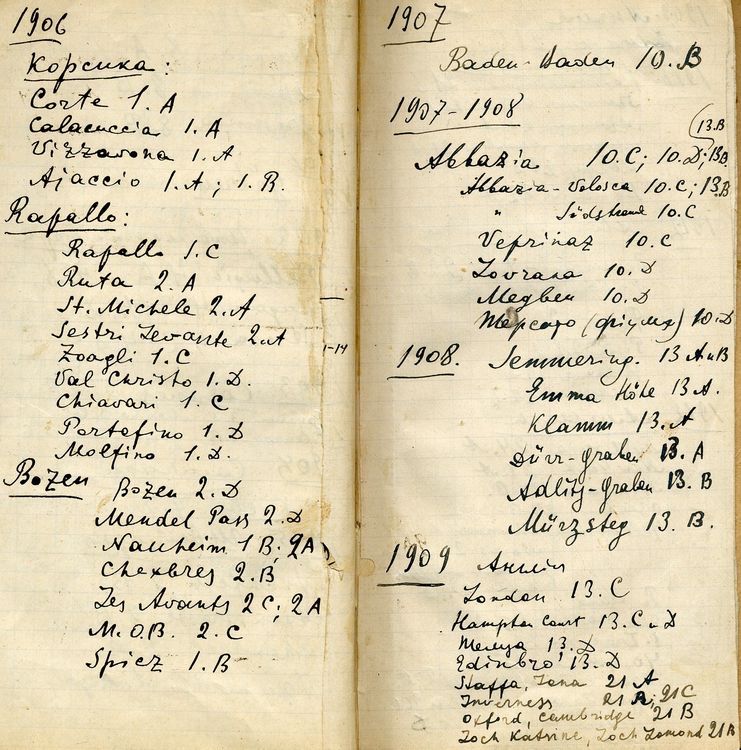 1906
Корсика:
Corte 1. A
Calacuccia 1. A
Vizzavona 1. A
Ajaccio 1. A; 1. B.
Rapallo:
Rapallo 1. C
Ruta 2. A
St. Michele 2. A
Sestri Levante 2. A
Zoagli 1. C
Val Christo 1. D.
Chiavari 1. C
Portofino 1. D
Molfino 1. D.
Bozen
Bozen 2. D
Mendel Pass 2. D
Nauheim 1 B; 2 A
Chexbres 2. B
Les Avants 2 C; 2 A
M. O. B. 2. C
Spiez 1. B
1-14
1907
Baden-Baden 10. B
1907-1908
13. B
Abbazia 10. C; 10. D; 13 B.
Abbazia-Volosca 10. C; 13. B
" Südstrand 10. C
Veprinaz 10. C
Lovrana 10. D
Медвеи 10. D
Терсато (фіуме) 10. D
1908. Semmering. 13 A и B
Emma Höhe 13 A.
Klamm 13. A
Dürr-graben 13. A
Adlitz-graben 13. B
Mürzsteg 13. B.
1909 Англия
London 13. C
Hampton Court 13. C и D
Темза 13. D
Edinbro' 13. D
Staffa, Iona 21 A
Inverness 21 A; 21 C
Oxford, Cambridge 21 B
Loch Katrine, Loch Lomond 21 B